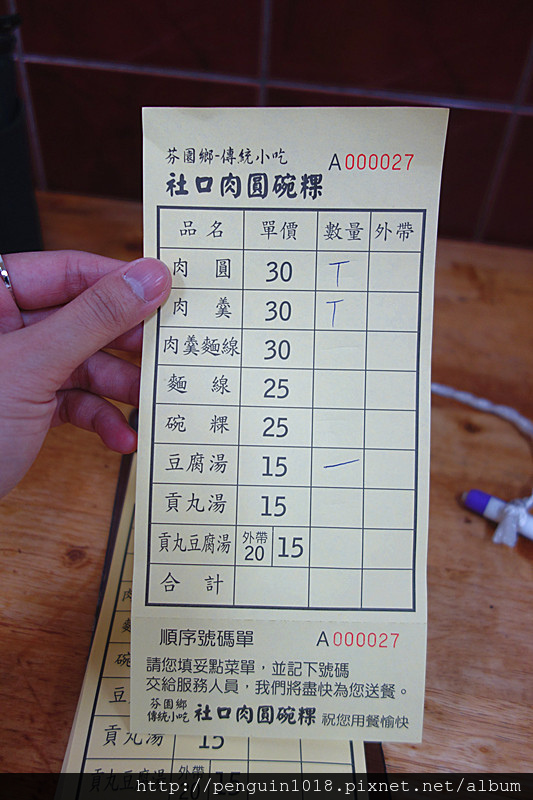 芬園鄉-傳統小吃 A000027
社口肉圓碗粿
品名 單價 數量 外帶
肉圓 30 丅
肉羹 30 丅
肉羹麵線 30
麵線 25
碗粿 25
豆腐湯 15 一
貢丸湯 15
貢丸豆腐湯 外帶20 15
合計
順序號碼單 A000027
請您填妥點菜單，並記下號碼
交給服務人員，我們將盡快為您送餐。
芬園鄉
傳統小吃 社口肉圓碗粿 祝您用餐愉快
貢丸湯 15
貢丸豆腐湯 外帶20 15
http://penguin1018.pixnet.net/album